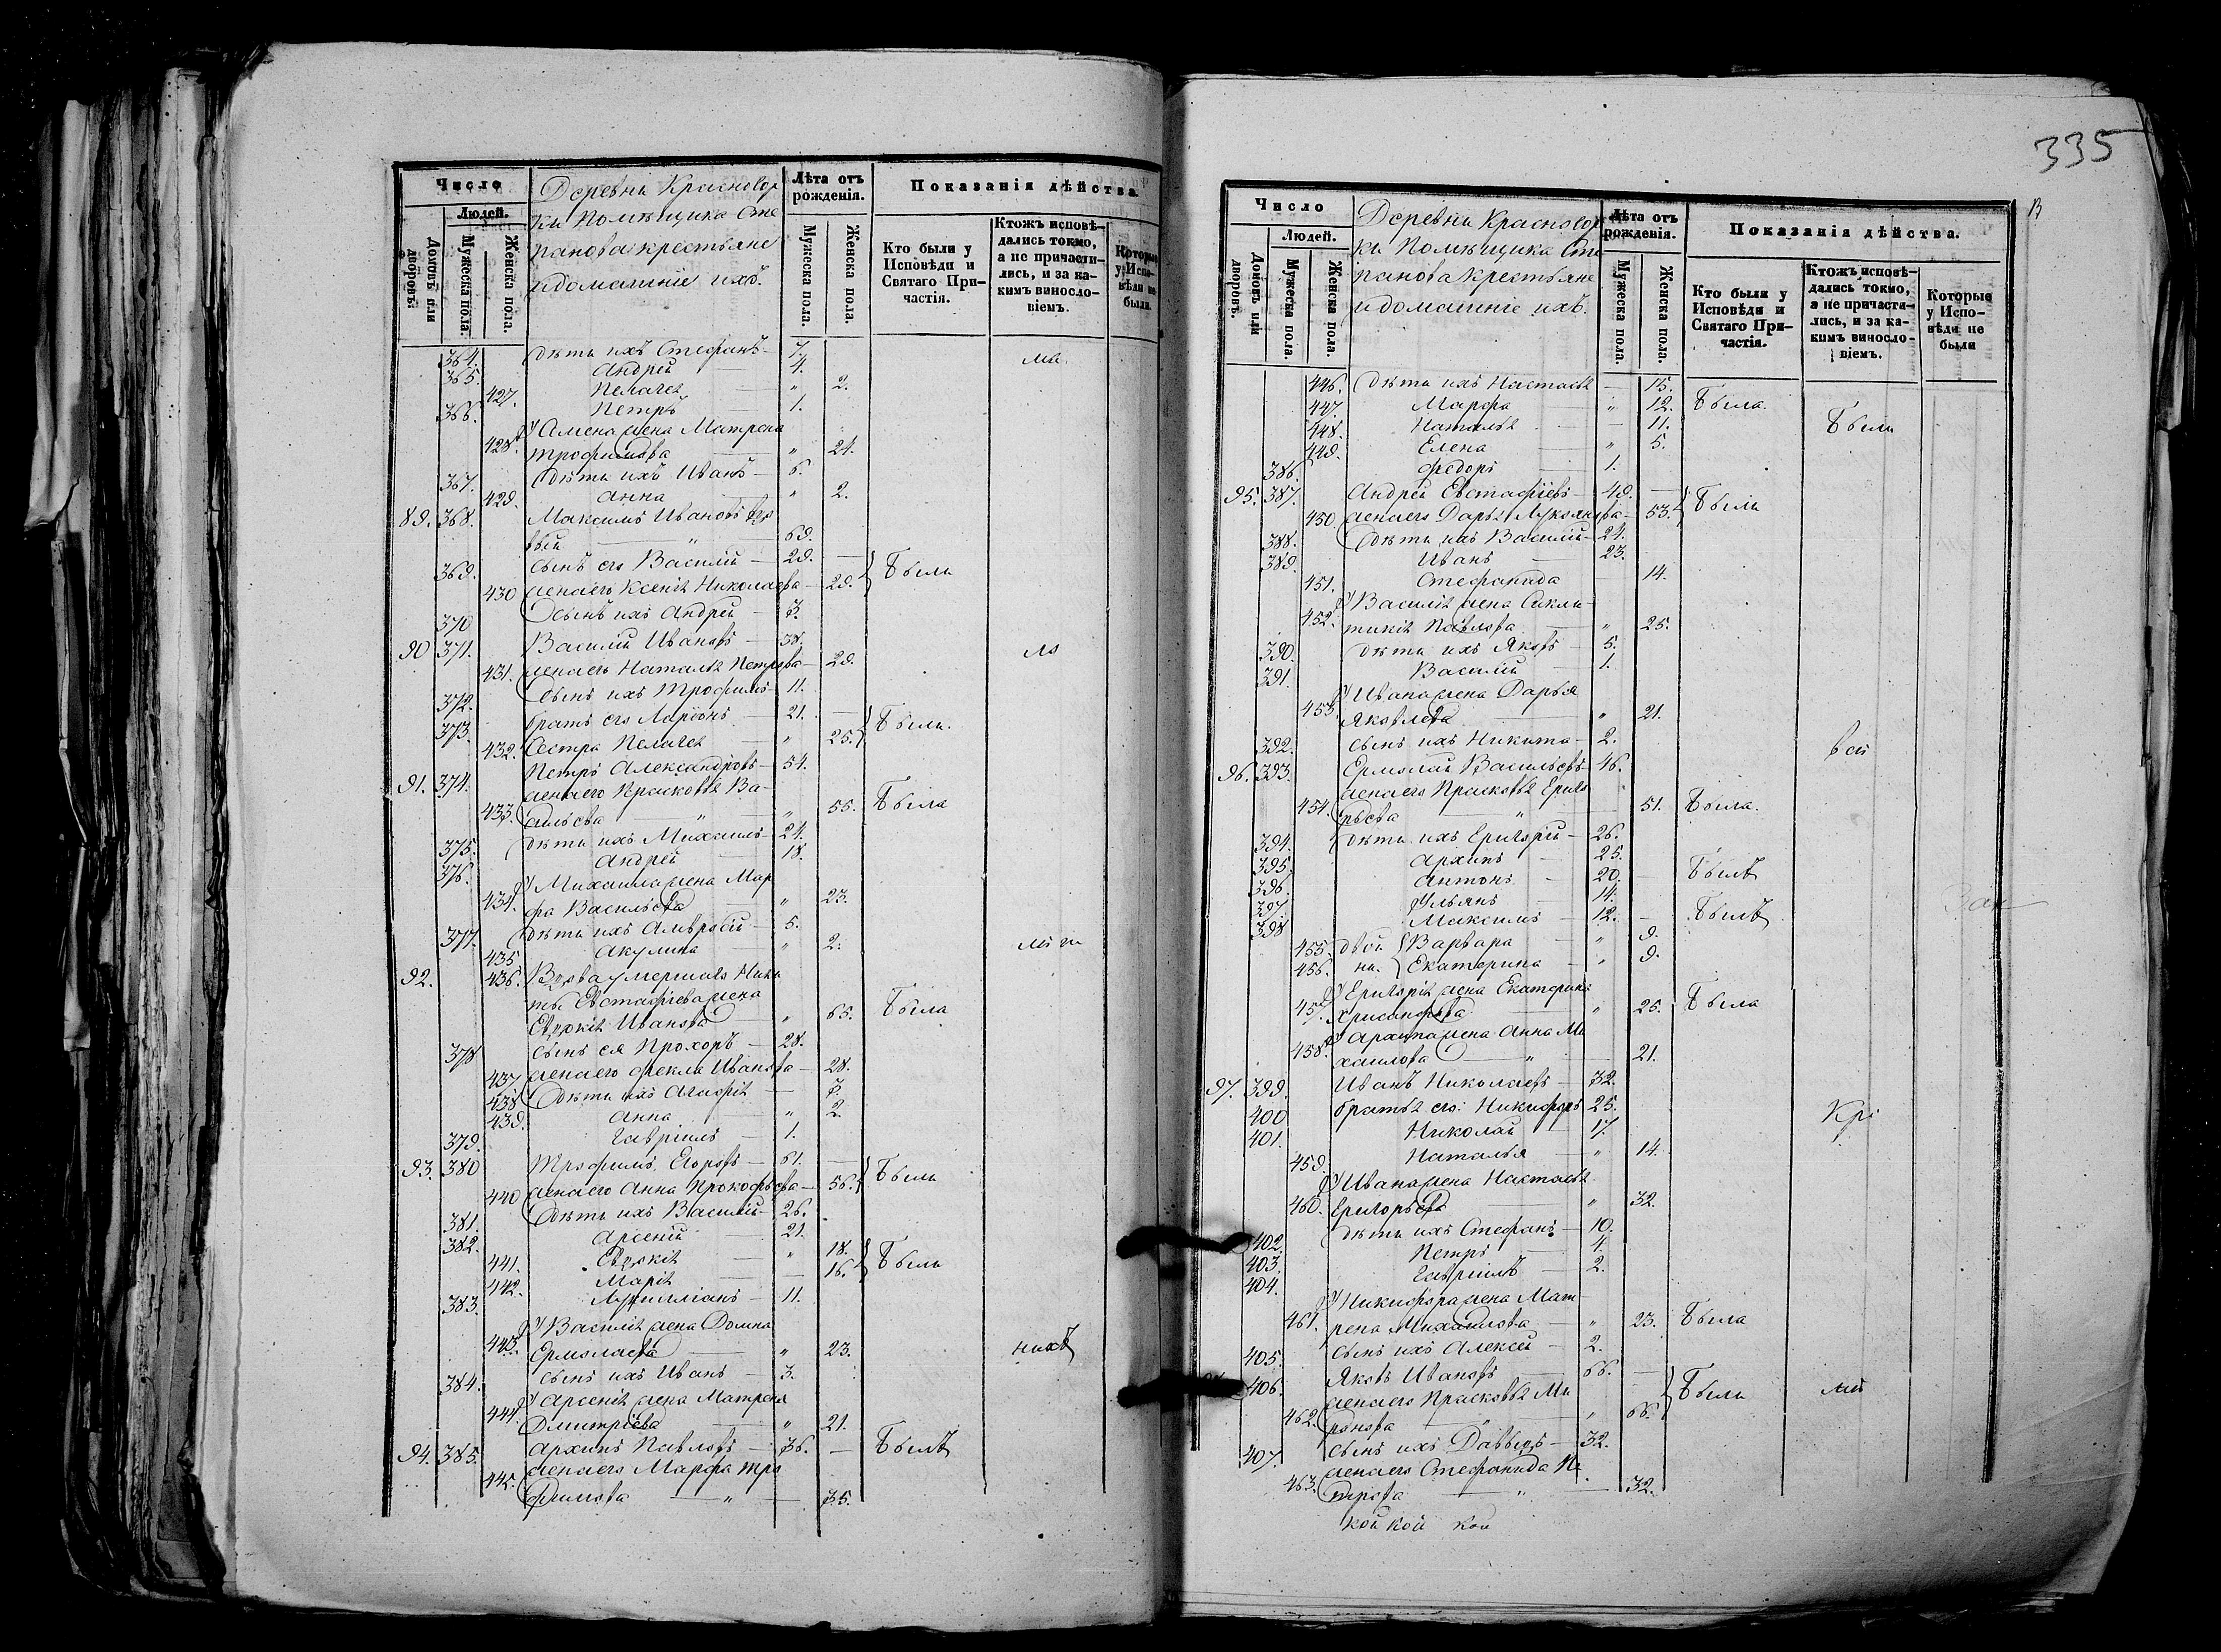 335
Число
Людей.
Домовъ или дворовъ.
Мужеска пола.
Женска пола.
Деревни Красногор
ки Помѣщика Сте
панова крестьяне
и домашніе ихъ.
Лѣта отъ рожденія.
Мужеска пола.
Женска пола.
Показанія дѣйства.
Кто были у Исповѣди и Святаго При-частія.
Ктожъ исповѣ-дались токмо, а не причасти-лись, и за ка-кимъ винословіемъ.
Которые у Испо-вѣди не были.
364. дѣти ихъ Стефанъ — 7.
365. Андрей — 4.
427. Пелагея — " 2.
366. Петръ — 1.
жена Матрена
428. Трофимова — " 24.
367. дѣти ихъ Иванъ — 6.
429. Анна — " 2.
89. 368. Максимъ Ивановъ вдо
вый — " — 69.
369. сынъ его Василій — 29. —
430 жена его Ксенія Николаева — 29. Были
370 сынъ ихъ Андрей — 3.
90 371. Василій Ивановъ — 38.
431. жена его Наталья Петрова — 29.
372. сынъ ихъ Трофимъ — 11.
373. братъ его Ларіонъ — 21. —
432. сестра Пелагея — " 25. Были.
91. 374. Петръ Александровъ — 54.
жена его Прасковья Ва-
433. сильева — " — " 55. Была
375. дѣти ихъ Михаилъ — 24.
376. Андрей — 18.
Михаила жена Мар
434. фа Васильева — " 23.
377. дѣти ихъ Амвросій — 5.
435 Акулина — " 2.
92. 436. Вдова умершаго Ники
ты Евстафіева жена
Евдокія Иванова — " 65. Была
378 сынъ ея Прохоръ — 28.
437 жена его Фекла Иванова — 28.
438 дѣти ихъ Агафія — 7.
439. Анна — " 2
379. Гавріилъ — 1.
93. 380 Трофимъ Егоровъ — 61. —
440 жена его Анна Прокофьева — 56. Были
381. дѣти ихъ Василій — 26.
382. Арсеній — 21.
441. Евдокія — " 18.
442. Марія — 16. Были
383. 11.
Василія жена Домна
443. Ермолаева — " 23.
384. сынъ ихъ Иванъ — 3.
Арсенія жена Матрена
444. Дмитріева — " 21.
94. 385. Архипъ Павловъ — 36. — Былъ
жена его Марфа Тро
445. фимова — " — 35.
Число
Людей.
Домовъ или дворовъ.
Мужеска пола.
Женска пола.
Деревни Красногор
ки Помѣщика Сте
панова крестьяне
и домашніе ихъ.
Лѣта отъ рожденія.
Мужеска пола.
Женска пола.
Показанія дѣйства.
Кто были у Исповѣди и Святаго При-частія.
Ктожъ исповѣ-дались токмо, а не причастя-лись, и за ка-кимъ винословіемъ.
Которые у Испо-вѣди не были
446. дѣти ихъ Настасья — 15.
447. Марфа — " 12. Была.
448. Наталья — 11. Были
449. Елена — " 5.
386. Федоръ — 1.
95. 387. Андрей Евстафіевъ — 49. —
450 жена его Дарья Лукоянова — 53. Были
388. дѣти ихъ Василій — 24.
389. Иванъ — 23.
451. Стефанида 14.
Василія жена Сикли-
452. тикія Павлова — " 25.
390. дѣти ихъ Яковъ — 5.
391. Василій — 1.
Ивана жена Дарья
453. Яковлева — " 21.
392. сынъ ихъ Никита — 2.
96. 393. Ермолай Васильевъ — 46.
жена его Прасковья Григо
454. рьева — " — 51. Была.
394. дѣти ихъ Григорій — 26.
395. Архипъ — 25.
396. Антонъ — 20. — Былъ
397 Ульянъ — 14.
398 Максимъ — 12. — Былъ
455. двой Варвара — " 9.
456. ни. Екатерина — " 9.
Григорія жена Екатерина
457. Хрисанфова — " 25. Была
Архипа жена Анна Ми
458. хаилова — " — 21.
97. 399. Иванъ Николаевъ — 32.
400 братья его: Никифоръ 25.
401. Николай — 17.
459. Наталья — " 14.
Ивана жена Настасья
460. Григорьева — " 32.
402. дѣти ихъ Стефанъ — 10.
403. Петръ — 4.
404. Гавріилъ — 2.
Никифора жена Мат-
461. рена Михаилова — " 23. Была
405. сынъ ихъ Алексей — 2.
406. Яковъ Ивановъ — 66. —
жена его Прасковья Ми
462. ронова — " — " 66. Были
407. сынъ ихъ Давыдъ — 32.
жена его Стефанида Пе
463. трова — " — 32.
кой кой кой